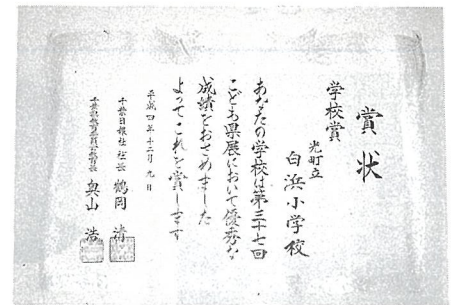 賞状
学校賞
光町立
白浜小学校
あなたの学校は第三十七回
こども県展において優秀な
成績をおさめました
よってこれを賞します
平成四年十二月九日
千葉日報社社長 鶴岡清
千葉県教育委員会教育長 奥山浩